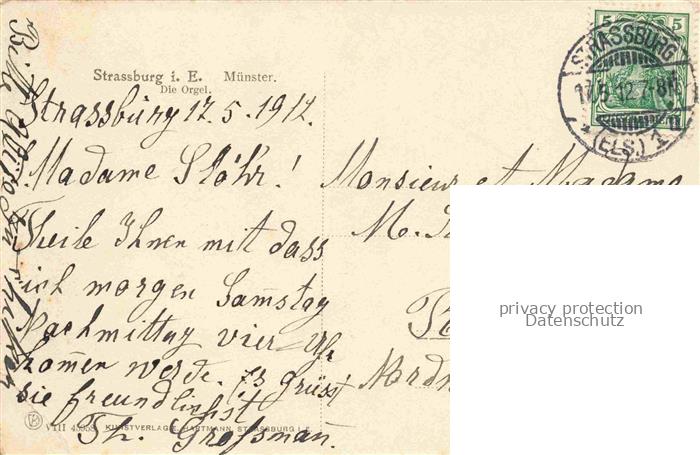 Strassburg i. E. Münster.
Die Orgel.
Strassburg 17.5.1912.
Madame Stöhr!
Teile Ihnen mit dass
ich morgen Samstag
Nachmittag vier Uhr
komen werde. Es grüsst
sie freundlichst
Th. Grossman.
VIII KUNSTVERLAG E. HARTMANN, STRASSBURG I. E.
Bitte
Monsieur et Madame
M. St
Nordn
5 5
STRASSBURG
17.5.12.7-8N
* (ELS.) 1
privacy protection
Datenschutz